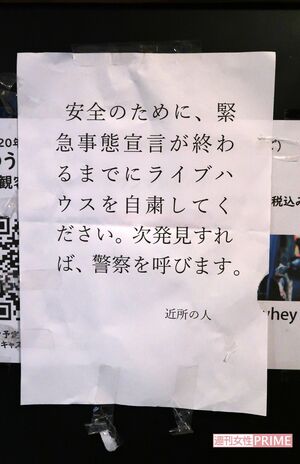 安全のために、緊
急事態宣言が終わ
るまでにライブハ
ウスを自粛してく
ださい。次発見すれ
ば、警察を呼びます。
近所の人
20年
観客
税込み
whey
週刊女性PRIME